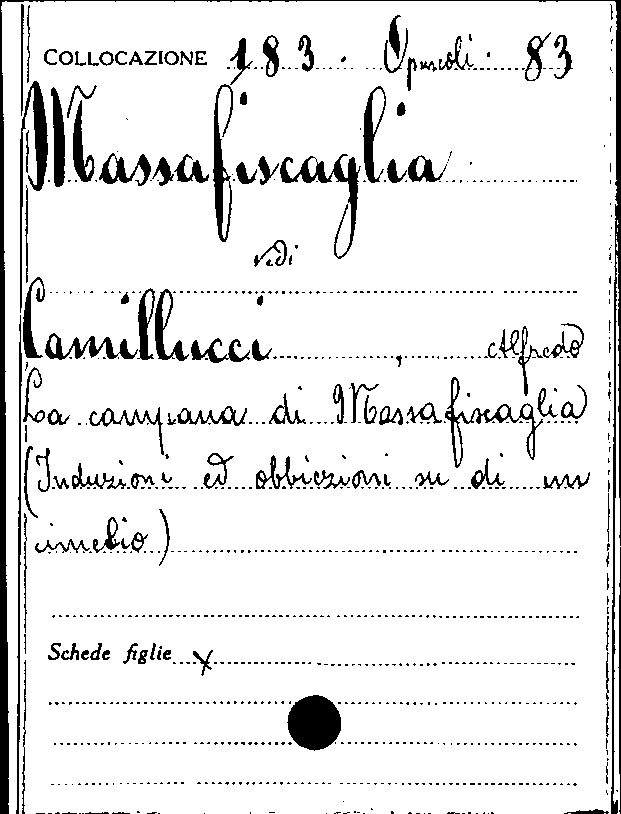 COLLOCAZIONE 183 · Opuscoli · 83
Massafiscaglia
vedi
Camillucci , Alfredo
La campana di Massafiscaglia
(Induzioni ed obbiezioni su di un
cimelio)
Schede figlie X